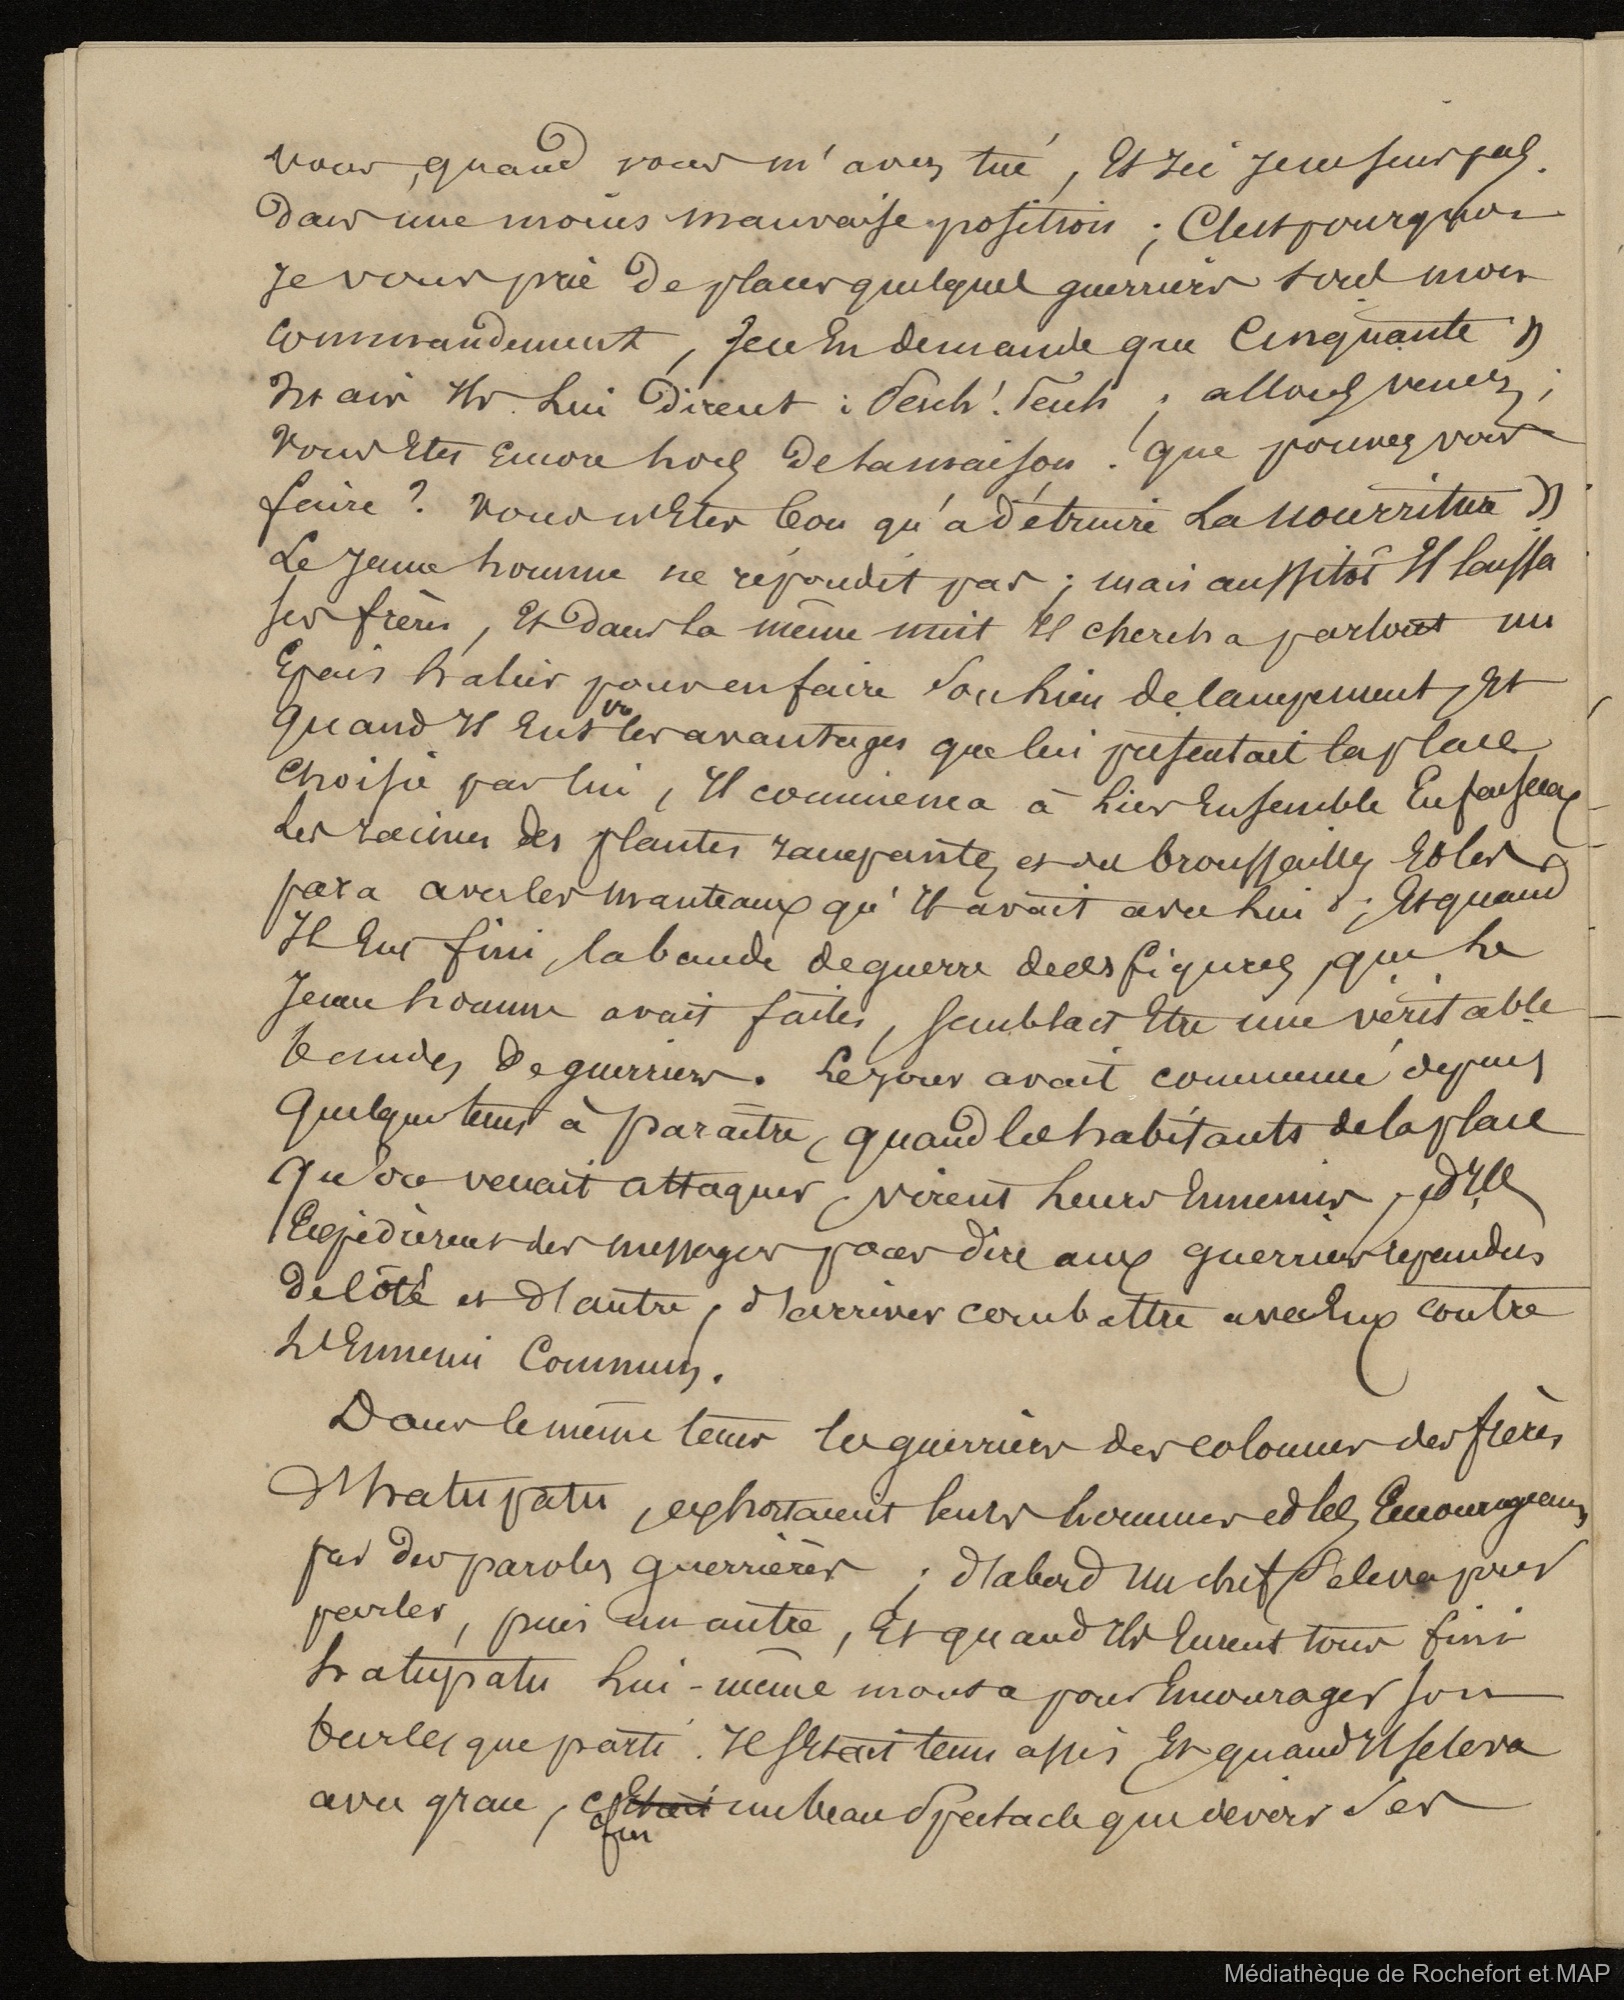 vous, quand vous m'avez tué, Et ici je ne suis pas
Dans une moins mauvaise position ; C'est pourquoi
Je vous prie De placer quelques guerriers sous mon
commandement, Je n'En demande que Cinquante »
Mais Ils Lui Dirent : Peuh ! Peuh ; allons venez ;
Vous Etes Encore hors De la maison. Que pouvez vous
faire ? Vous n'Etes bon qu'a détruire La nourriture »
Le Jeune homme ne répondit pas ; mais aussitôt Il laissa
ses frères, Et Dans la même nuit Il chercha partout un
Epais hallier pour en faire Son lieu de campement, Et
Quand Il Eut vu les avantages que lui présentait la place
choisie par lui, Il commenca à Lier Ensemble En faisceaux
Les racines des plantes rampantes et des broussailles Et les
para avec les manteaux qu'Il avait avec Lui ; Et quand
Il Eut fini, la bande de guerre de ces figures, que Le
Jeune homme avait faites, semblait Etre une véritable
bandes De guerriers. Le jour avait commencé depuis
Quelque tems à paraître, quand les habitants de la place
Qu'on venait attaquer, virent Leurs Ennemis, et Ils
Expédièrent des messagers pour dire aux guerriers répandus
De côté et d'autre, d'arriver combattre avec Eux contre
L'Ennemi Commun.
Dans le même tems les guerriers des colonnes des frères
d'hatupatu, exhortaient leurs hommes et les Encourageaient
par des paroles guerrières ; d'abord un chef se leva pour
parler, puis un autre, Et quand Ils Eurent tous fini
hatupatu Lui-même monta pour Encourager son
burlesque parti. Il s'Etait tenu assis Et quand Il se leva
avec grace, ce fut un beau Spectacle que de voir Ses